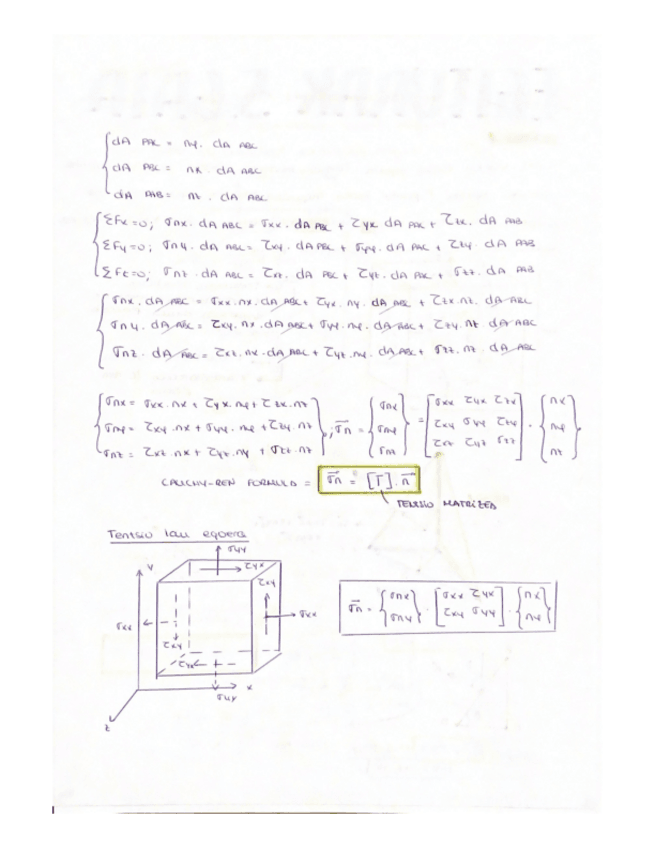 dA PAC = ny. dA ABC
dA PBC = nx. dA ABC
dA PAB = nz. dA ABC
ΣFx=0; σnx. dA ABC = σxx. dA PBC + τyx dA PAC + τzx. dA PAB
ΣFy=0; σny. dA ABC = τxy. dA PBC + σyy. dA PAC + τzy. dA PAB
ΣFz=0; σnz. dA ABC = τxz. dA PBC + τyz. dA PAC + σzz. dA PAB
σnx. dA ABC = σxx. nx. dA ABC + τyx. ny. dA ABC + τzx. nz. dA ABC
σny. dA ABC = τxy. nx. dA ABC + σyy. ny. dA ABC + τzy. nz dA ABC
σnz. dA ABC = τxz. nx. dA ABC + τyz. ny. dA ABC + σzz. nz. dA ABC
σnx = σxx. nx + τyx. ny + τzx. nz
σny = τxy. nx + σyy. ny + τzy. nz
σnz = τxz. nx + τyz. ny + σzz. nz
; σn = {σnx σny σnz} = [σxx τyx τzx
τxy σyy τzy
τxz τyz σzz] . {nx ny nz}
CAUCHY-REN FORMULA = σn = [T]. n
TENTSIO MATRIZEA
Tentsio lau egoera
σyy
τyx
y
τxy
σxx
σxx
τxy
τyx
x
σyy
z
σn = {σnx σny} . [σxx τyx
τxy σyy] . {nx ny}